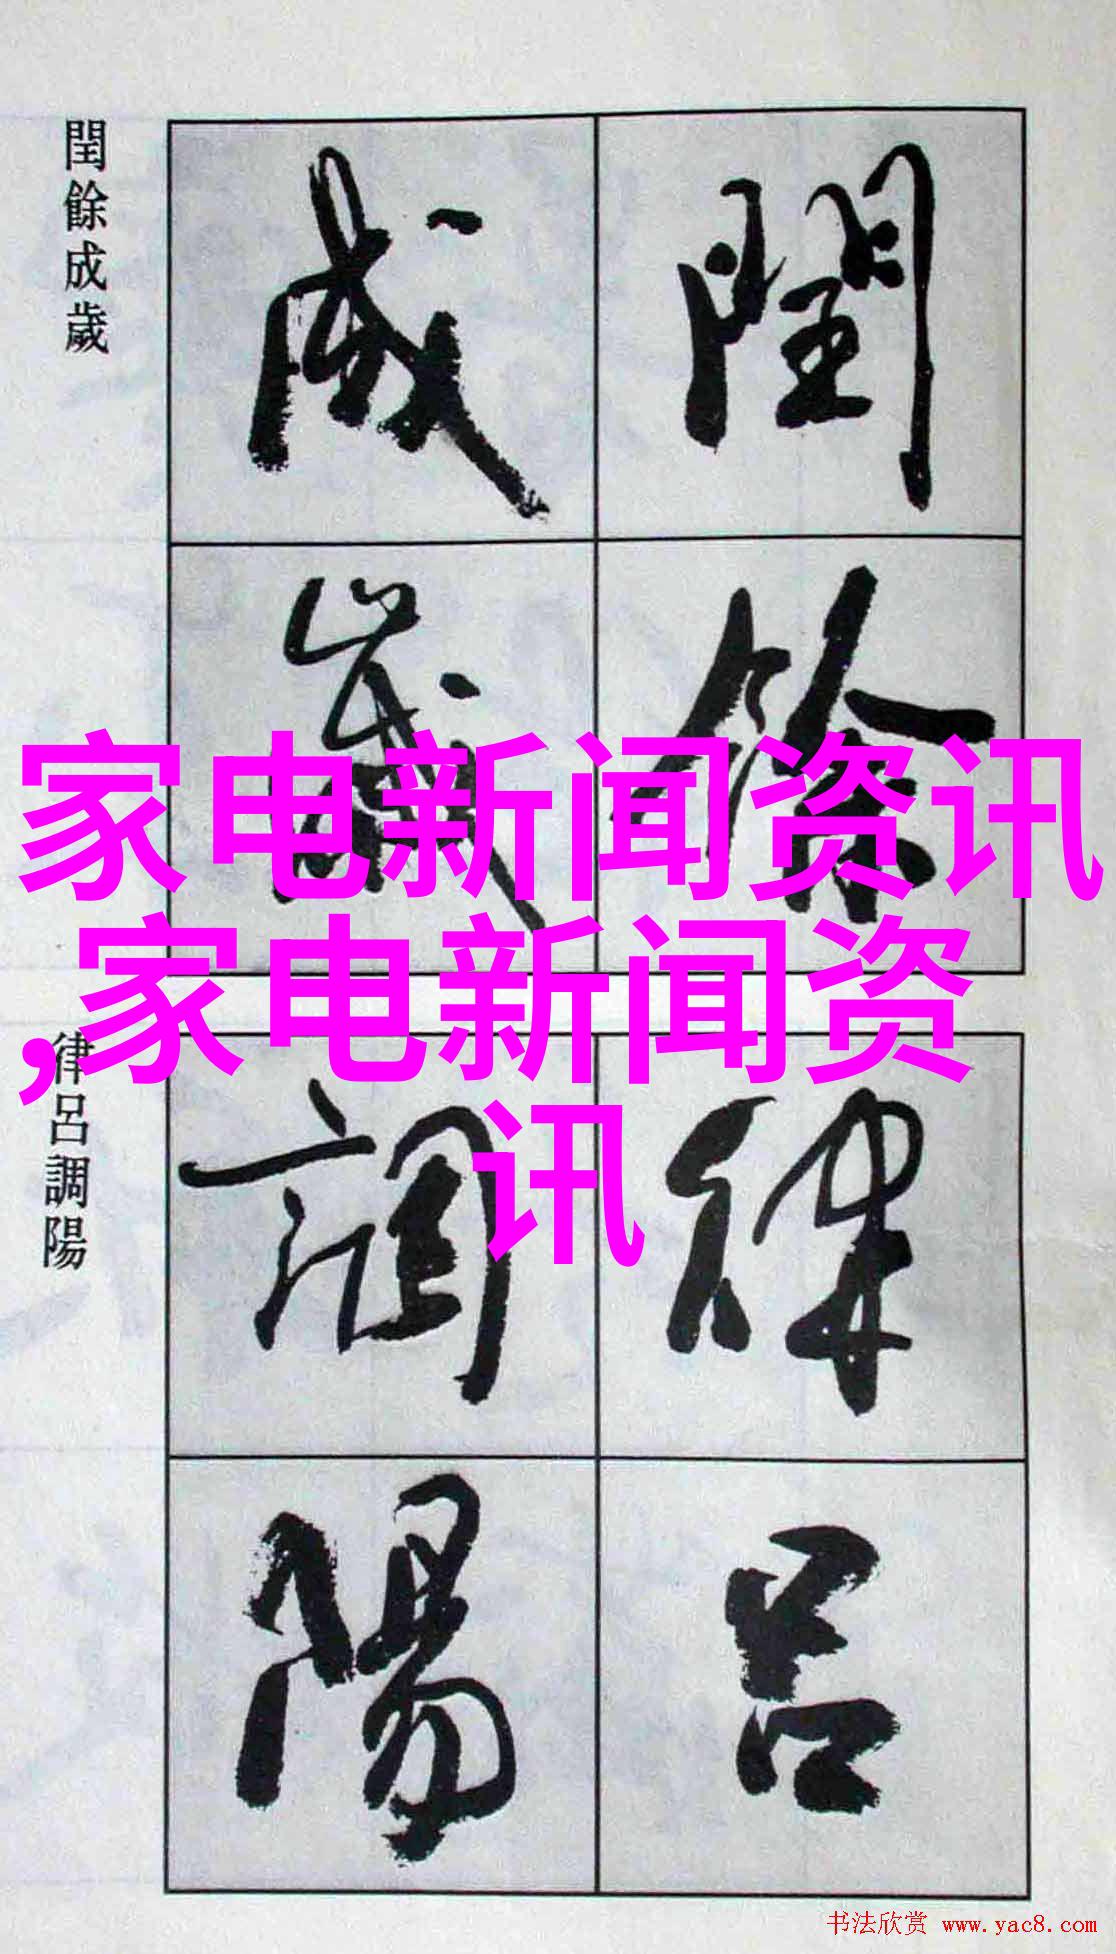 閏餘成歲
閏餘
成歲
家电新闻资讯
,家电新闻资
讯
律呂調陽
律呂
調陽
书法欣赏 www.yac8.com